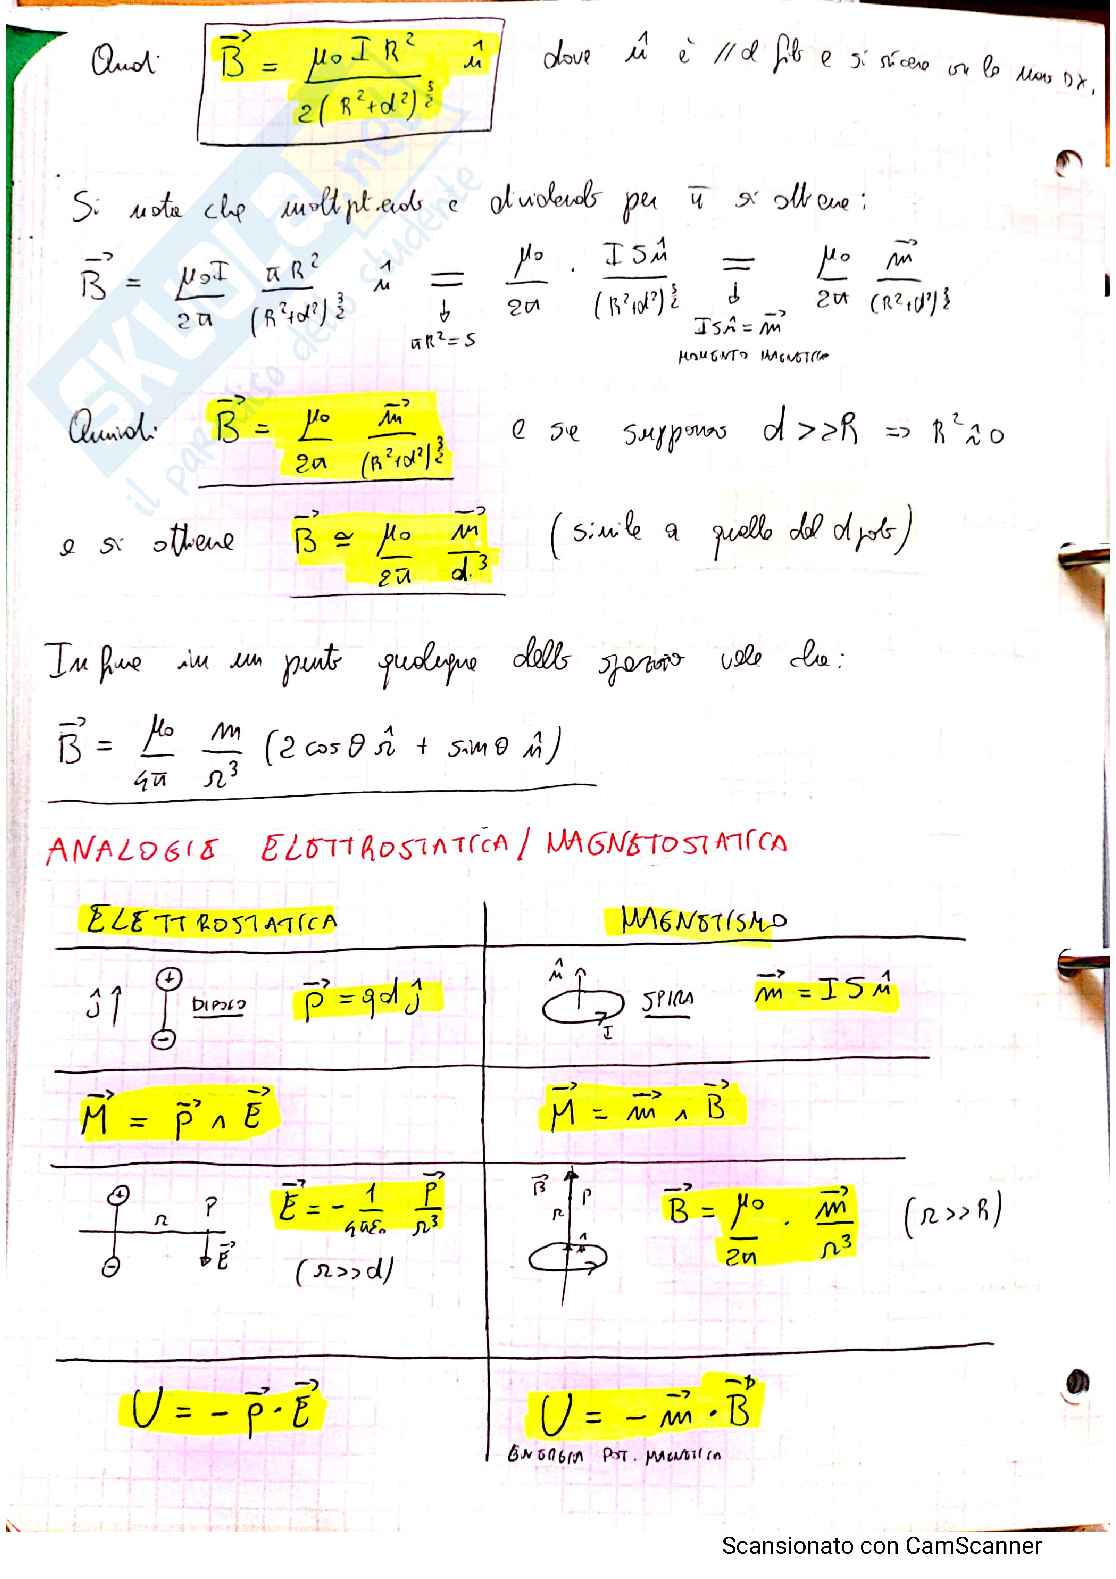 Quindi B⃗ = μ₀ I R² / 2(R²+d²)^{3/2} n̂ dove n̂ è // a d e si ricava con la mano DX.
Si nota che moltiplicando e dividendo per π si ottiene:
B⃗ = μ₀I/2π πR²/(R²+d²)^{3/2} n̂ = μ₀/2π · I S n̂/(R²+d²)^{3/2} = μ₀/2π m⃗/(R²+d²)^{3/2}
↓ πR² = S ↓ I S n̂ = m⃗
MOMENTO MAGNETICO
Quindi B⃗ = μ₀/2π m⃗/(R²+d²)^{3/2} e se suppongo d >> R ⇒ R² ≃ 0
e si ottiene B⃗ ≃ μ₀/2π m⃗/d³ (simile a quello del dipolo)
Infine in un punto qualunque dello spazio vale che:
B⃗ = μ₀/4π m/r³ (2 cos θ r̂ + sin θ n̂)
ANALOGIE ELETTROSTATICA / MAGNETOSTATICA
ELETTROSTATICA MAGNETISMO
ĵ ↑ + − DIPOLO p⃗ = q d ĵ n̂ I SPIRA m⃗ = I S n̂
M⃗ = p⃗ ∧ E⃗ M⃗ = m⃗ ∧ B⃗
+ − r P E⃗ E⃗ = − 1/4πε₀ p⃗/r³ B⃗ P r B⃗ = μ₀/2π · m⃗/r³ (r >> R)
(r >> d)
U = − p⃗ · E⃗ U = − m⃗ · B⃗
ENERGIA POT. MAGNETICA
SKUOLA.net
il paradiso dello studente
Scansionato con CamScanner